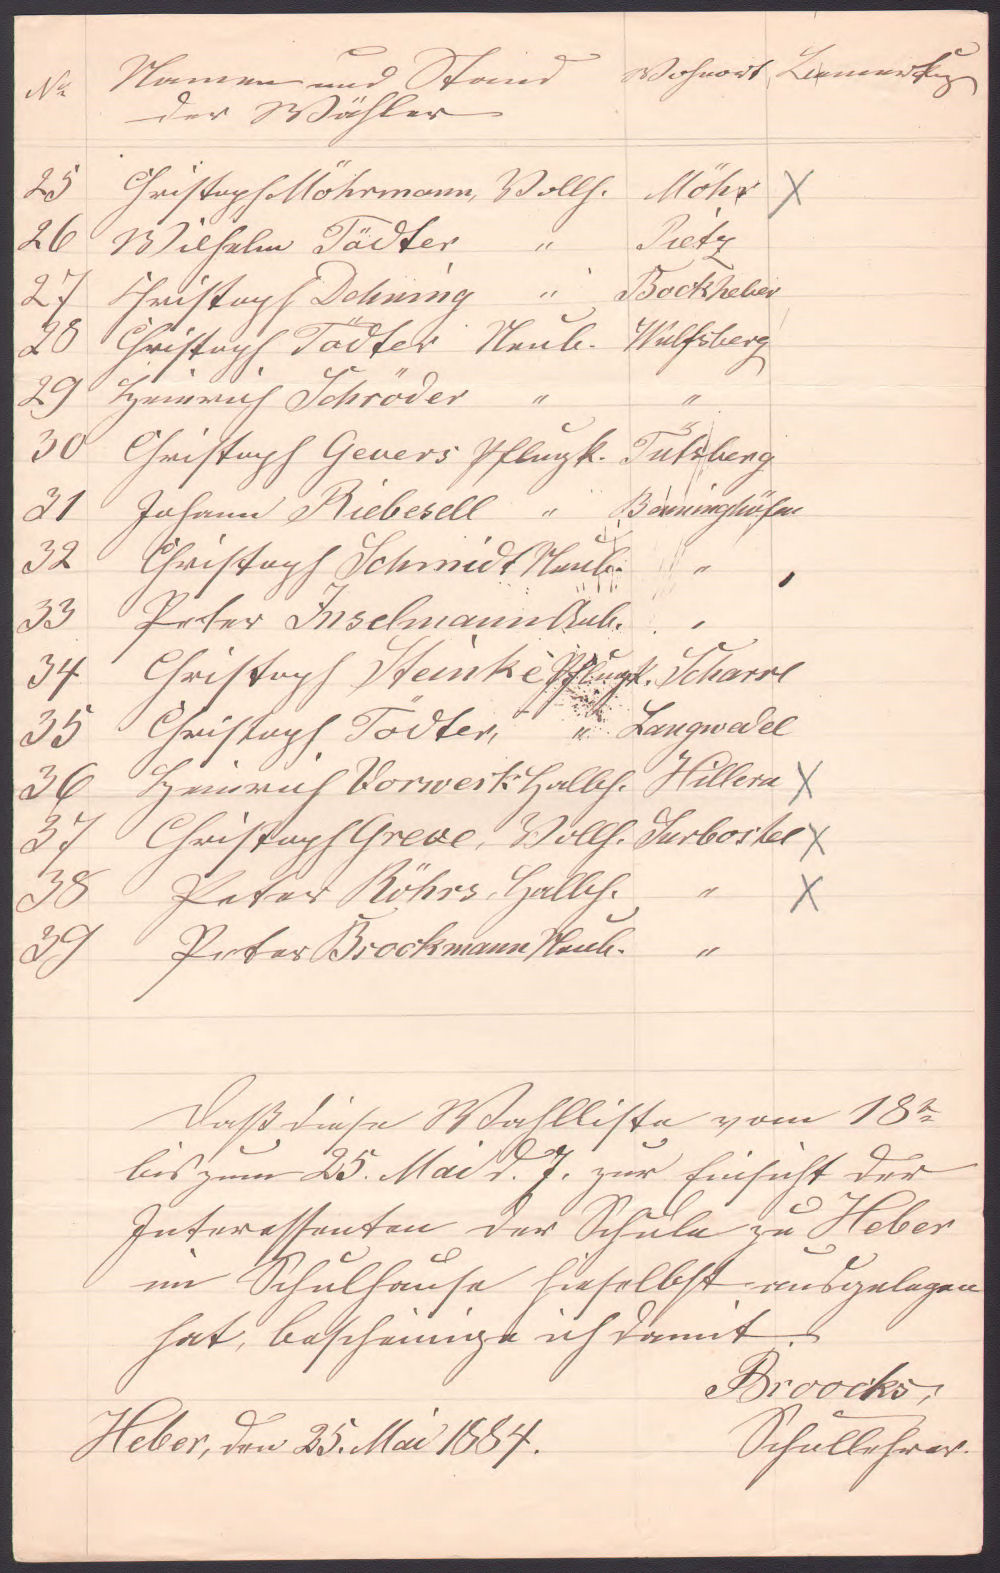 No. Namen und Stand Wohnort Bemerkung
der Wähler
25 Christoph Möhrmann, Vollh. Möhr X
26 Wilhelm Tödter " Pietz
27 Christoph Dehning " Bockheber
28 Christoph Tödter Neub. Wulfsberg
29 Heinrich Schröder " "
30 Christoph Gevers Pflugk. Tütsberg
31 Johann Riebesell " Benninghöfen
32 Christoph Schmidt Neub. "
33 Peter Inselmann Anb. "
34 Christoph Steinke Pflugk. Scharrl
35 Christoph Tödter, " Langwedel
36 Heinrich Vorwerk Halbh. Hillern X
37 Christoph Greve, Vollh. Surbostel X
38 Peter Röhrs, Halbh. " X
39 Peter Brockmann Neub. "
Daß diese Wahlliste vom 18ten
bis zum 25. Mai d. J. zur Einsicht der
Interessenten der Schule zu Heber
im Schulhause hieselbst ausgelegen
hat, bescheinige ich damit.
Broocks,
Heber, den 25. Mai 1884. Schullehrer.